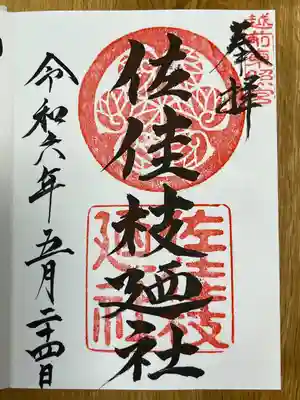 越前東照宮
奉拝
佐佳枝廼社
佐佳枝
廼社
令和六年五月二十四日